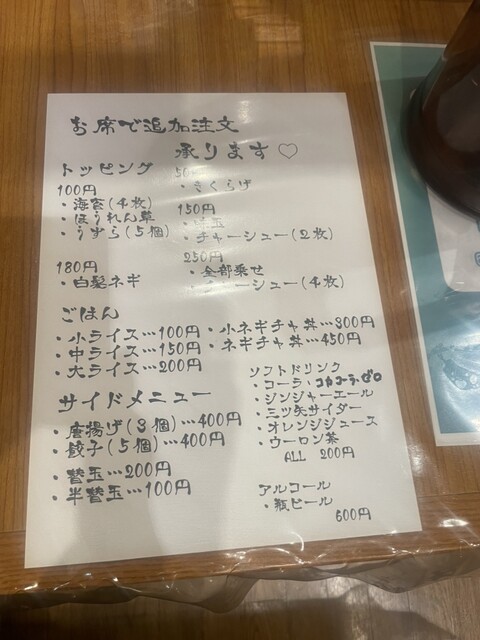 お席で追加注文
承ります♡
トッピング
100円
・海苔(4枚)
・ほうれん草
・うずら(5個)
180円
・白髪ネギ
50
・きくらげ
150円
・チャーシュー(2枚)
250円
・全部乗せ
チャーシュー(4枚)
ごはん
・小ライス…100円
・中ライス…150円
・大ライス…200円
・小ネギチャ丼…300円
・ネギチャ丼…450円
サイドメニュー
・唐揚げ(3個)…400円
・餃子(5個)…400円
・替玉…200円
・半替玉…100円
ソフトドリンク
・コーラ・コカコーラ・ゼロ
・ジンジャーエール
・三ツ矢サイダー
・オレンジジュース
・ウーロン茶
ALL 200円
アルコール
・瓶ビール
600円